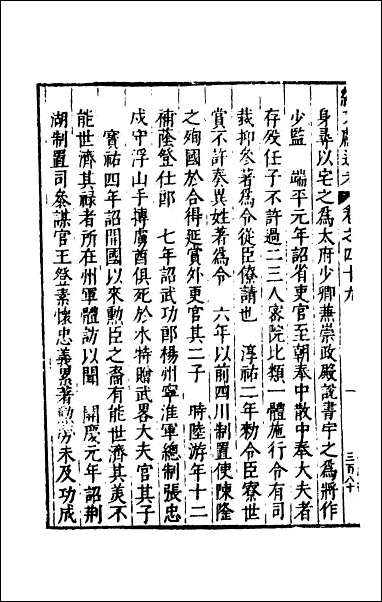 續文獻通考 卷之四十九 一 三百八十
身尋以宅之爲太府少卿兼崇政殿說書宇之爲將作
少監　端平元年詔省吏官至朝奉中散中奉大夫者
存歿任子不許過二三人密院比類一體施行令有司
裁抑參著爲令從臣僚請也　淳祐二年勑令臣寮世
賞不許奏異姓著爲令　六年以前四川制置使陳隆
之殉國於合得延賞外更官其二子　時陸游年十二
補蔭登仕郎　七年詔武功郎楊州寧淮軍總制張忠
戍守浮山手摶虜酋俱死於水特贈武畧大夫官其子
寳祐四年詔開國以來勲臣之裔有能世濟其美不
能世濟其祿者所在州軍體訪以聞　開慶元年詔荆
湖制置司叅謀官王登素懷忠義累著勲勞未及功成